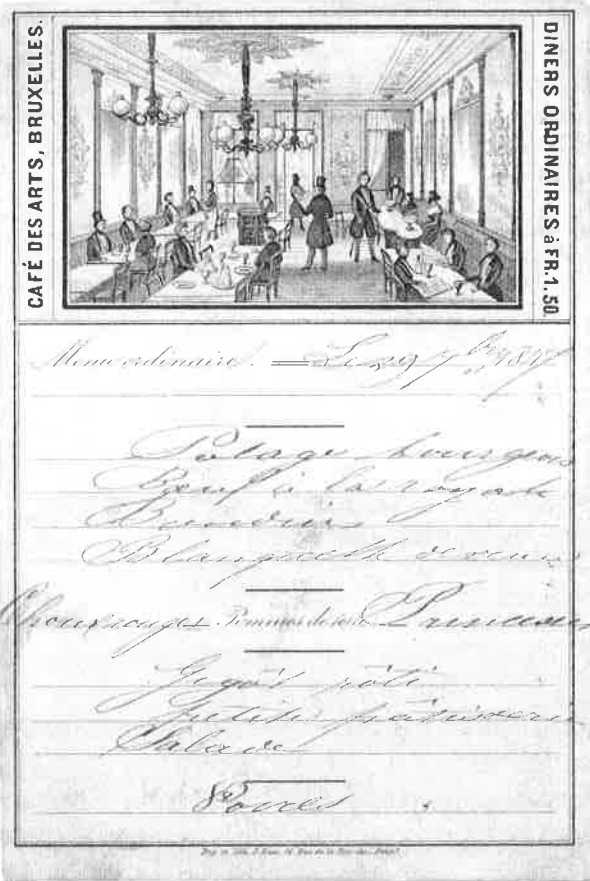 CAFÉ DES ARTS, BRUXELLES.
DINERS ORDINAIRES à FR. 1, 50.
Menu ordinaire. Le 29 7bre
Potage bourgeois
Bœuf à la royale
Blanquette de veau
Choux rouges Pommes de terre Princesses
Gigot rôti
Petite pâtisserie
Salade
Poires